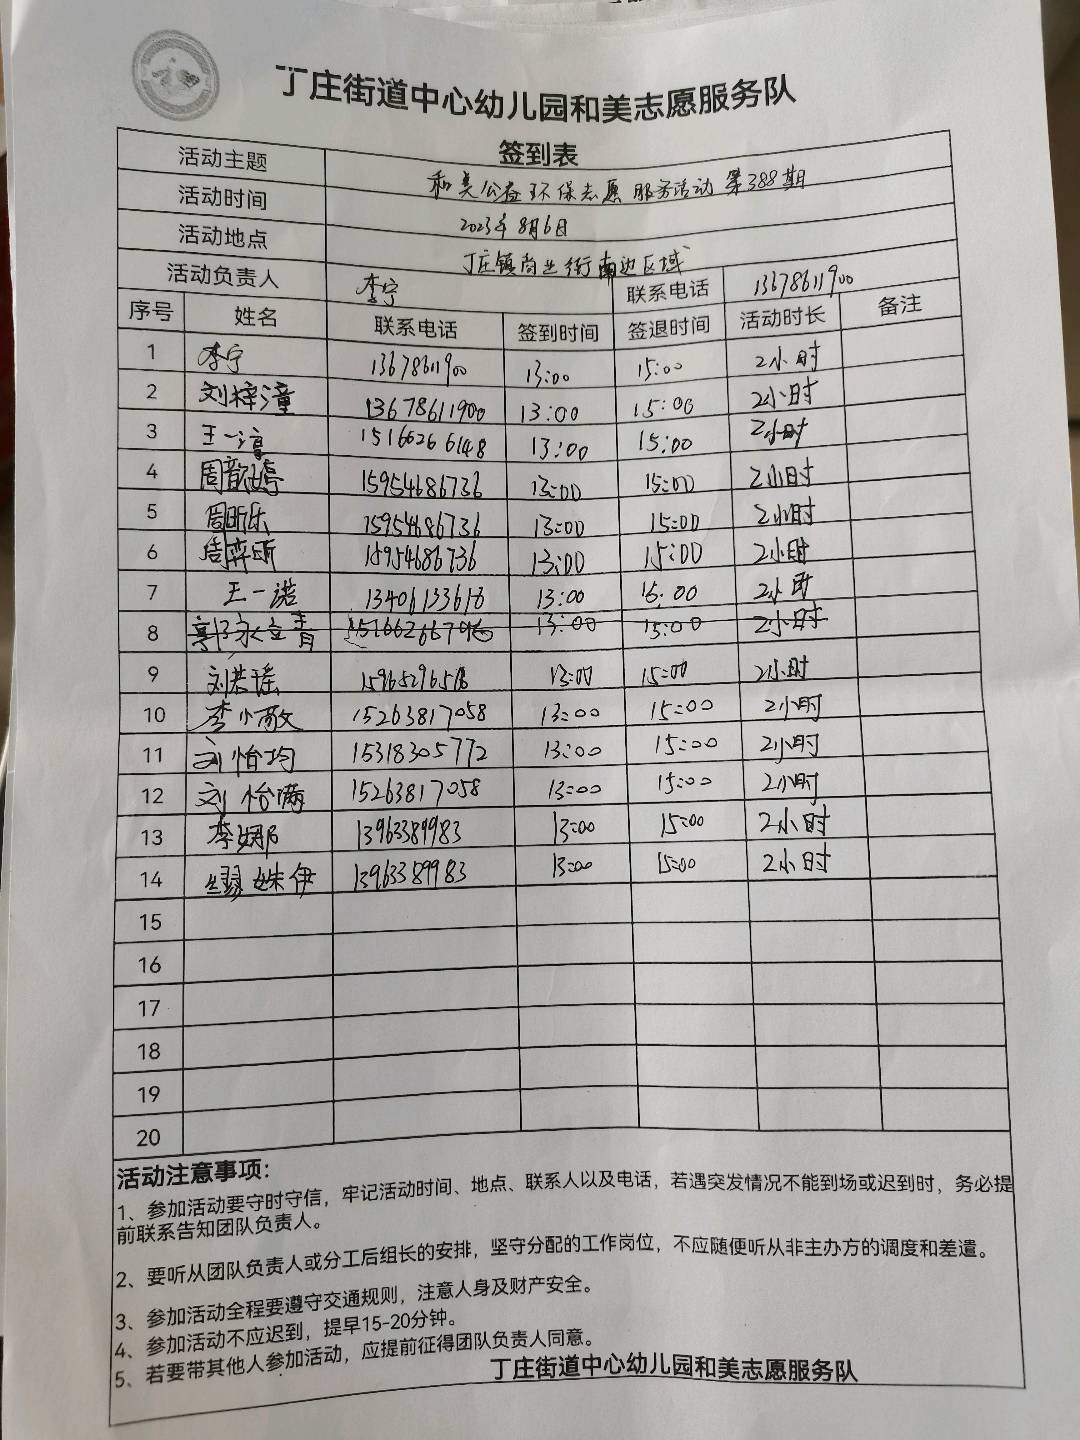 丁庄街道中心幼儿园和美志愿服务队
签到表
活动主题 和美公益环保志愿服务活动第388期
活动时间 2023年8月6日
活动地点 丁庄镇商业街南边区域
活动负责人 李宁 联系电话 13678611900
序号 姓名 联系电话 签到时间 签退时间 活动时长 备注
1 李宁 13678611900 13:00 15:00 2小时
2 刘梓潼 13678611900 13:00 15:00 2小时
3 王一淳 15166266148 13:00 15:00 2小时
4 周歆婷 15954686736 13:00 15:00 2小时
5 周昕乐 15954686736 13:00 15:00 2小时
6 周弈昕 15954686736 13:00 15:00 2小时
7 王一诺 13406133618 13:00 15:00 2小时
8 13:00 15:00 2小时
9 刘若瑶 13:00 15:00 2小时
10 李小敬 15263817058 13:00 15:00 2小时
11 刘怡均 15318305772 13:00 15:00 2小时
12 刘怡满 15263817058 13:00 15:00 2小时
13 李娜 13963389983 13:00 15:00 2小时
14 缪姝伊 13963389983 13:00 15:00 2小时
15
16
17
18
19
20
活动注意事项:
1、参加活动要守时守信，牢记活动时间、地点、联系人以及电话，若遇突发情况不能到场或迟到时，务必提
前联系告知团队负责人。
2、要听从团队负责人或分工后组长的安排，坚守分配的工作岗位，不应随便听从非主办方的调度和差遣。
3、参加活动全程要遵守交通规则，注意人身及财产安全。
4、参加活动不应迟到，提早15-20分钟。
5、若要带其他人参加活动，应提前征得团队负责人同意。
丁庄街道中心幼儿园和美志愿服务队